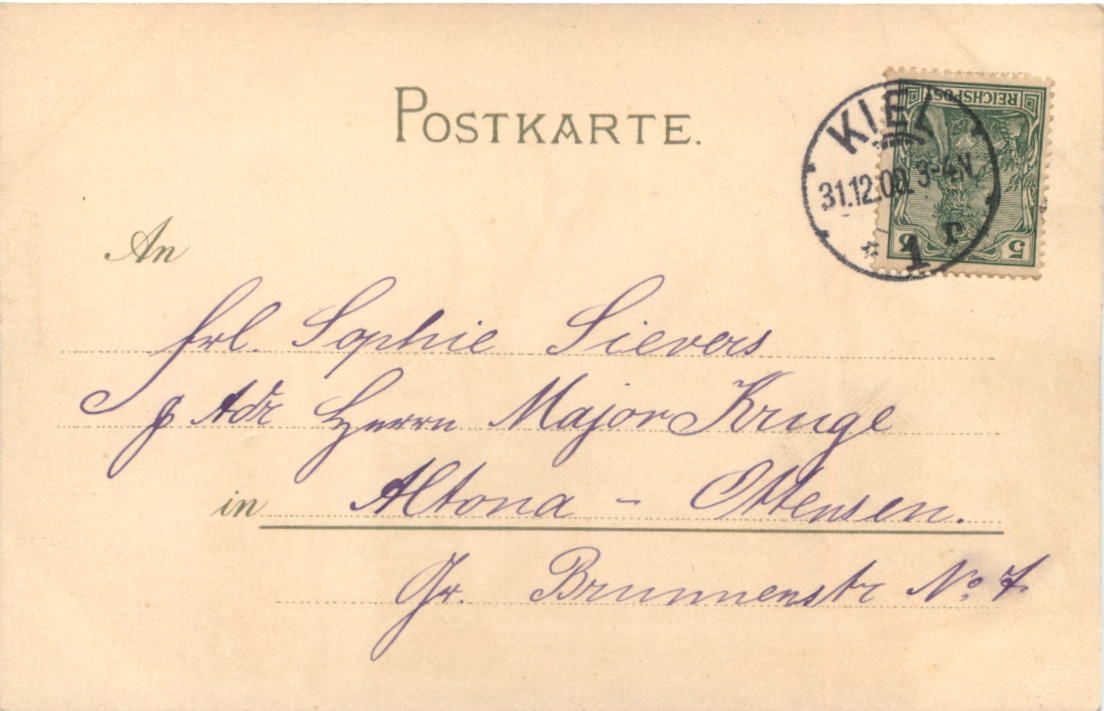 POSTKARTE.
REICHSPOST
5 5
KIEL
31.12.00. 3-4N.
* 1 r
An
Frl. Sophie Sievers
p Adr Herrn Major Kruge
in Altona - Ottensen.
Gr. Brunnenstr No. 7